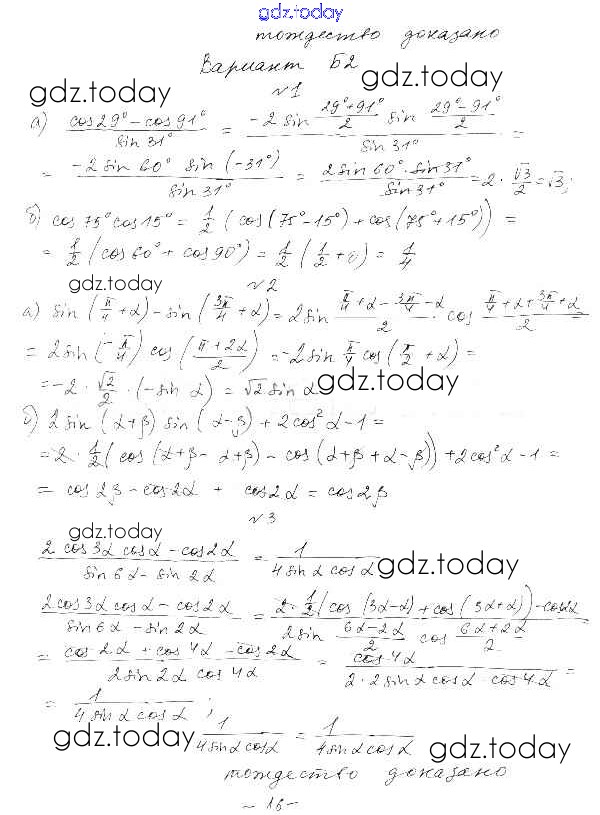 gdz.today
тождество доказано
Вариант Б2
gdz.today
gdz.today
№1
а) (cos29° - cos91°)/(sin31°) = (-2sin (29°+91°)/2 sin (29°-91°)/2)/(sin31°) =
= (-2sin60° sin(-31°))/(sin31°) = (2sin60°·sin31°)/(sin31°) = 2·√3/2 = √3;
б) cos75°cos15° = 1/2 (cos(75°-15°) + cos(75°+15°)) =
= 1/2 (cos60° + cos90°) = 1/2 (1/2 + 0) = 1/4
gdz.today
№2
а) sin(π/4 + α) - sin(3π/4 + α) = 2sin (π/4 + α - 3π/4 - α)/2 · cos (π/4 + α + 3π/4 + α)/2 =
= 2sin(-π/4) cos((π + 2α)/2) = -2sin π/4 cos(π/2 + α) =
= -2 · √2/2 · (-sin α) = √2 sin α
gdz.today
б) 2sin(α+β) sin(α-β) + 2cos²α - 1 =
= 2 · 1/2 (cos(α+β-α+β) - cos(α+β+α-β)) + 2cos²α - 1 =
= cos2β - cos2α + cos2α = cos2β
№3
gdz.today
(2cos3α cosα - cos2α)/(sin6α - sin2α) = 1/(4sinα cosα)
gdz.today
(2cos3α cosα - cos2α)/(sin6α - sin2α) = (2·1/2(cos(3α-α) + cos(3α+α)) - cos2α)/(2sin (6α-2α)/2 cos (6α+2α)/2)
= (cos2α + cos4α - cos2α)/(2sin2α cos4α) = (cos4α)/(2·2sinα cosα · cos4α) =
= 1/(4sinα cosα);
gdz.today
1/(4sinα cosα) = 1/(4sinα cosα)
gdz.today
тождество доказано
- 16 -